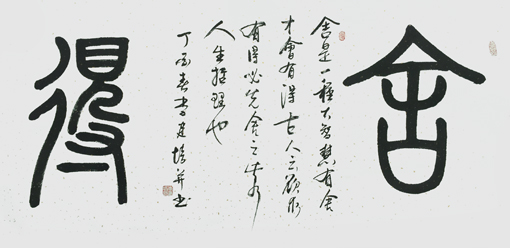 舍
舍是一種大智慧有舍
才會有得古人云欲
有得必先舍之此乃
人生哲理也
丁酉春
得